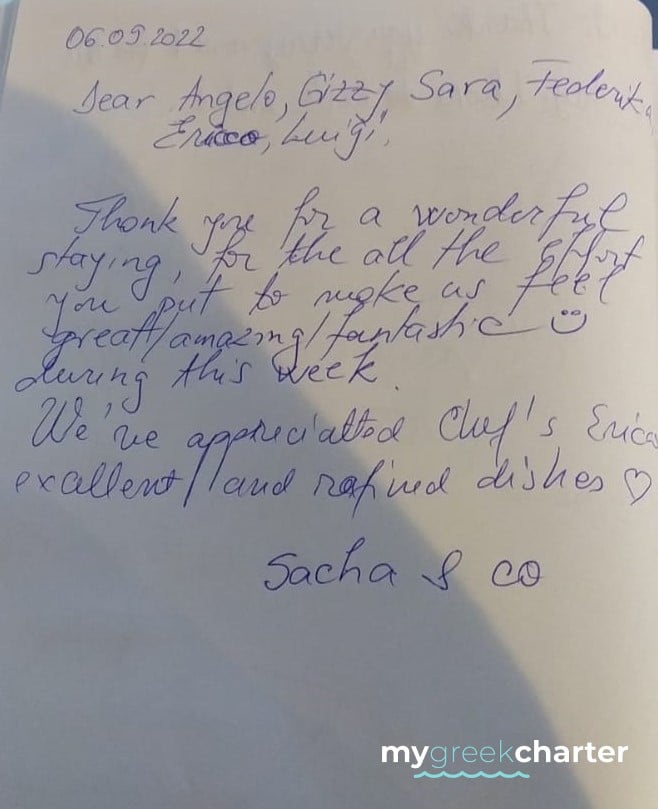 06.09.2022
Dear Angelo, Gizzy Sara, Federika
Ericco, Luigi,
Thank you for a wonderful
staying, for the all the effort
you put to make us feel
great/amazing/fantastic ☺
during this week.
We've appreciatted Chef's Erico
excellent/ and rafined dishes ♡
Sacha & co
mygreekcharter